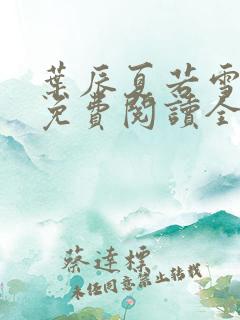 葉辰夏若雪
免費閱讀全
蔡達標
未经同意禁止转载